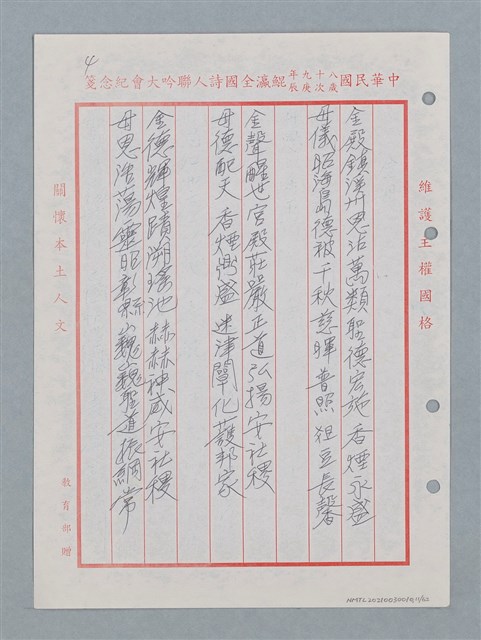 4
中華民國八十九年歲次庚辰鯤瀛全國詩人聯吟大會紀念箋
維護主權國格
金殿鎮溪州恩沾萬類聖德宏施香煙永盛
母儀昭海島德被千秋慈暉普照俎豆長馨
金聲醒世宮殿莊嚴正道弘揚安社稷
母德配天香煙鼎盛迷津闡化護邦家
金德輝煌蹟溯瑤池赫赫神威安社稷
母恩浩蕩靈昭彰縣巍巍聖道振綱常
關懷本土人文
教育部贈